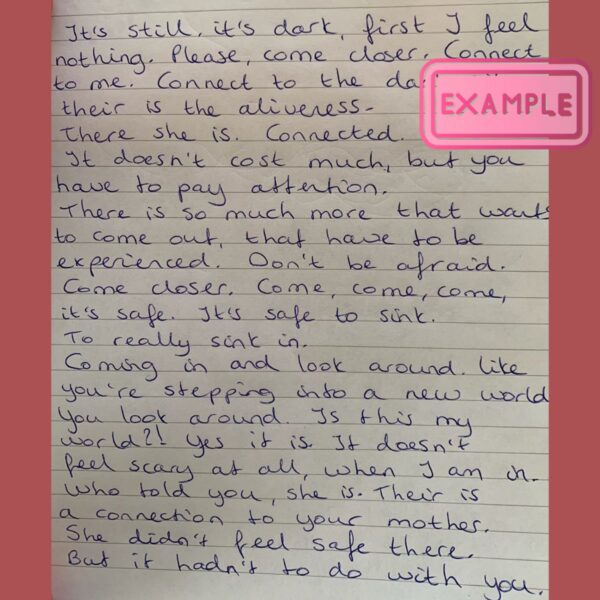 It's still, it's dark, first I feel
nothing. Please, come closer. Connect
to me. Connect to the
EXAMPLE
their is the aliveness-
There she is. Connected.
It doesn't cost much, but you
have to pay attention.
There is so much more that wants
to come out, that have to be
experienced. Don't be afraid.
Come closer. Come, come, come,
it's safe. It's safe to sink.
To really sink in.
Coming in and look around. like
you're stepping into a new world
You look around. Is this my
world?! Yes it is. It doesn't
feel scary at all, when I am in.
Who told you, she is. Their is
a connection to your mother.
She didn't feel safe there.
But it hadn't to do with you.